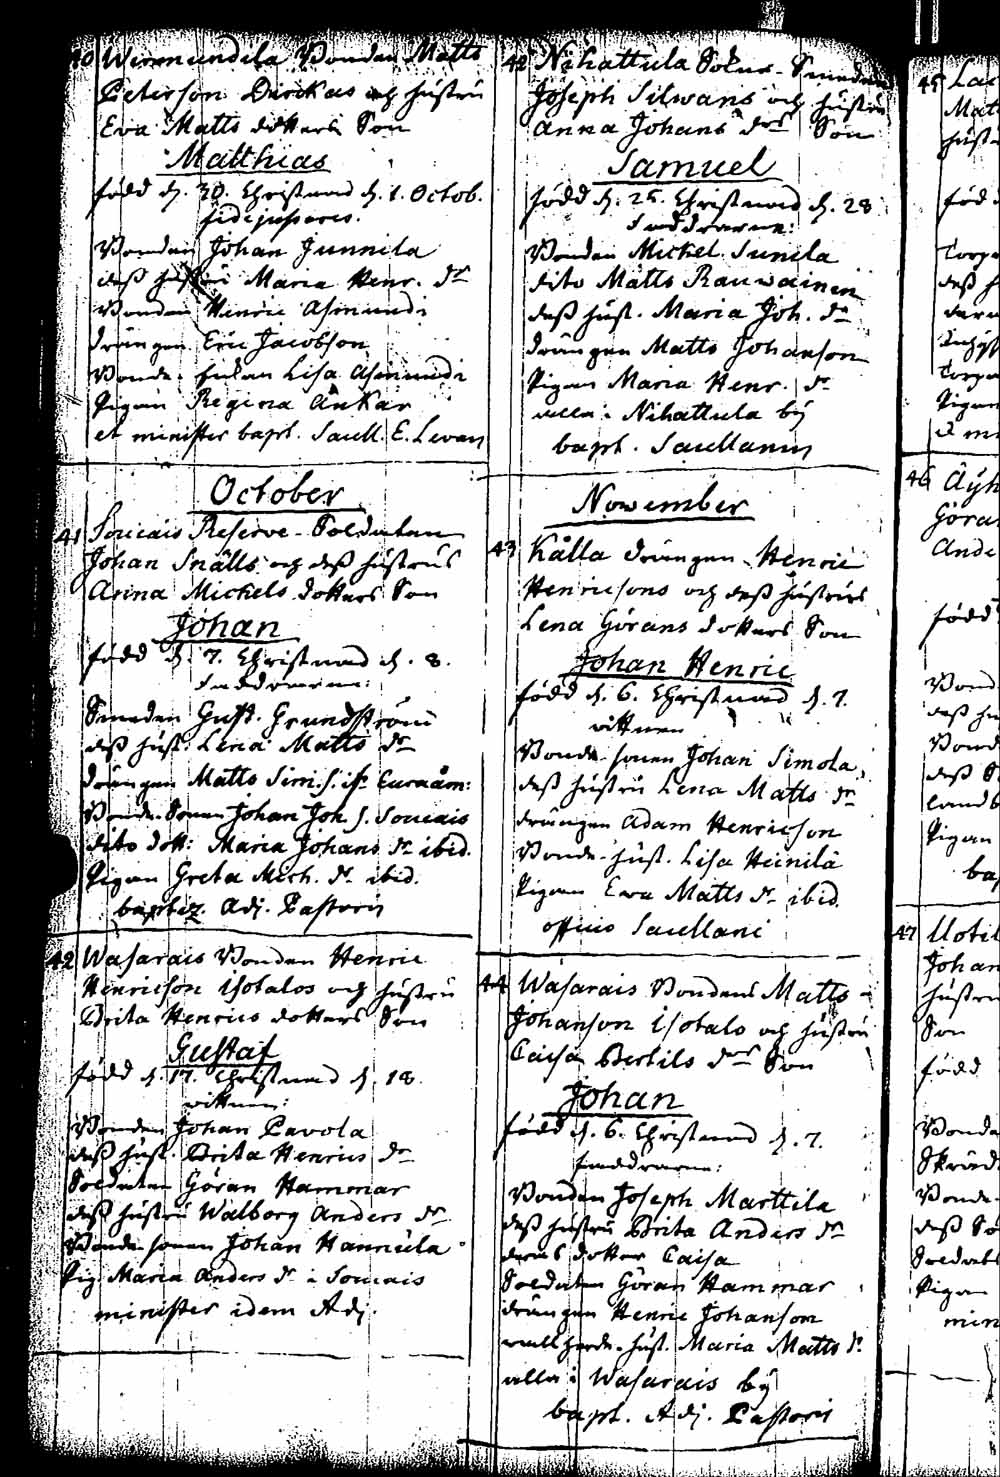 40 Wirmundila Bonden Matts
Peterson Dirckas och hustru
Eva Matts dotters Son
Matthias
född d. 30. Christnad d. 1. Octob.
fidejussores.
Bonden Johan Junnila
dess hustru Maria Henr. dr
Bonden Henric Asmundi
drängen Eric Jacobson
Bonde Lisa Asmundi
Pigan Regina Ankar
et minister bapt. Sacell. E. Levan
October
41 Soucais Reserve-Soldaten
Johan Snälls och dess hustrus
Anna Michels dotters Son
Johan
född d. 7. Christnad d. 8.
Faddrarne:
Smeden Gust. Grundström
dess hust. Lena Matts dr
drängen Matts Sim. s. Euraåm:
Bonde-Sonen Johan Joh. s. Soucais
dito dott: Maria Johans dr ibid.
Pigan Greta Mich. dr ibid.
baptiz. Adj. Pastoris
42 Wasarais Bonden Henric
Henricson Isotalos och hustru
Brita Henrics dotters Son
Gustaf
född d. 17. Christnad d. 18.
vittnen:
Bonden Johan Pavola
dess hust. Brita Henrics dr
Soldaten Göran Hammar
dess hustru Walborg Anders dr
Bonde-sonen Johan Hannula
Pig. Maria Anders dr i Soucais
minister idem Adj.
42 Nihattula Sokne-Smeden
Joseph Silwans och hustru
Anna Johans drs Son
Samuel
född d. 25. Christnad d. 28
Faddrarne:
Bonden Michel Sunila
dito Matts Rauwainen
dess hust. Maria Joh. dr
drängen Matts Johanson
Pigan Maria Henr. dr
alla i Nihattula by
bapt. Sacellanus
November
43 Kålla drängen Henric
Henricsons och dess hustrus
Lena Görans dotters Son
Johan Henric
född d. 6. Christnad d. 7.
vittnen
Bonde-sonen Johan Simola,
dess hustru Lena Matts dr
drängen Adam Henricson
Bonde-hust. Lisa Heinilä
Pigan Ewa Matts dr ibid.
officio Sacellani
44 Wasarais Bondens Matts
Johanson Isotalo och hustru
Caisa Bertils drs Son
Johan
född d. 6. Christnad d. 7.
Faddrarne:
Bonden Joseph Marttila
dess hustru Brita Anders dr
deras dotter Caisa
Soldaten Göran Hammar
drängen Henric Johanson
hust. Maria Matts dr
alla i Wasarais by
bapt. Adj. Pastoris
45
Mat
hust
född
dess h
Pigan
46
Göra
Ande
född
Bond
dess hu
Bond
dess S
Pigan
bap
47
Johan
hustru
Son
född
Bonde
Bonde
dess
Soldat
Pigan
min